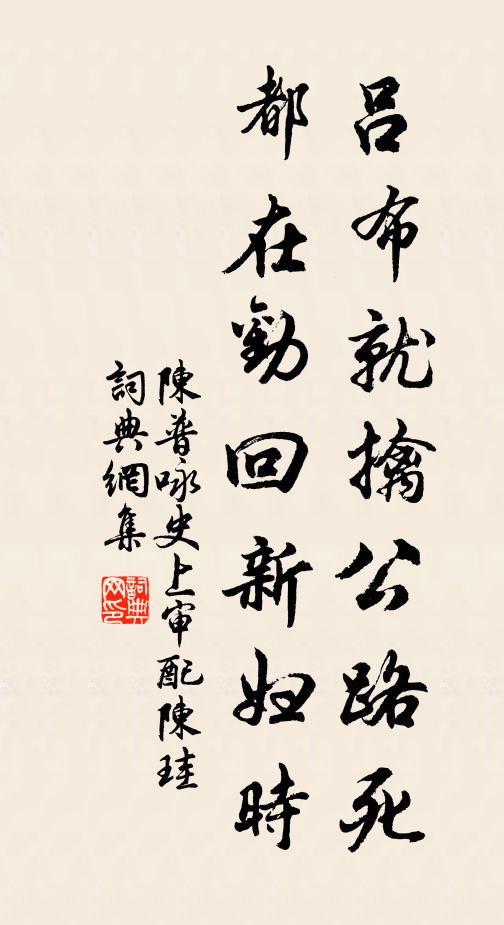 呂布就擒公路死
都在勸回新婦時
陳普咏史上審配陳珪
詞典網集
詞典網印